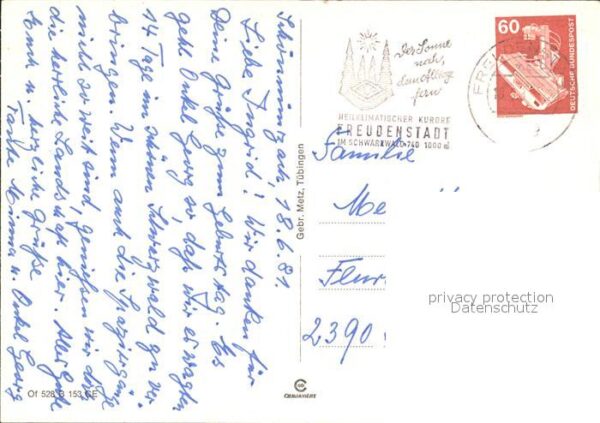 Schwarzach, 18.6.81
Liebe Ingrid! Wir danken für
Deine Grüße zum Geburtstag. Es
geht Onkel Georg so, daß wir es wagten
14 Tage im schönen Schwarzwald zu ver-
bringen. Wenn auch die Spaziergänge
nicht so weit sind, genießen wir doch
die herrliche Landschaft hier. Alles Gute
Euch u. herzliche Grüße
Tante Minna u. Onkel Georg
Of 528 B 153 CE
Gebr. Metz, Tübingen
CEKADE
Der Sonne
nah,
dem Alltag
fern
HEILKLIMATISCHER KURORT
FREUDENSTADT
IM SCHWARZWALD·740 1000 m
60
DEUTSCHE BUNDESPOST
Familie
Me
Flur
2390
privacy protection
Datenschutz